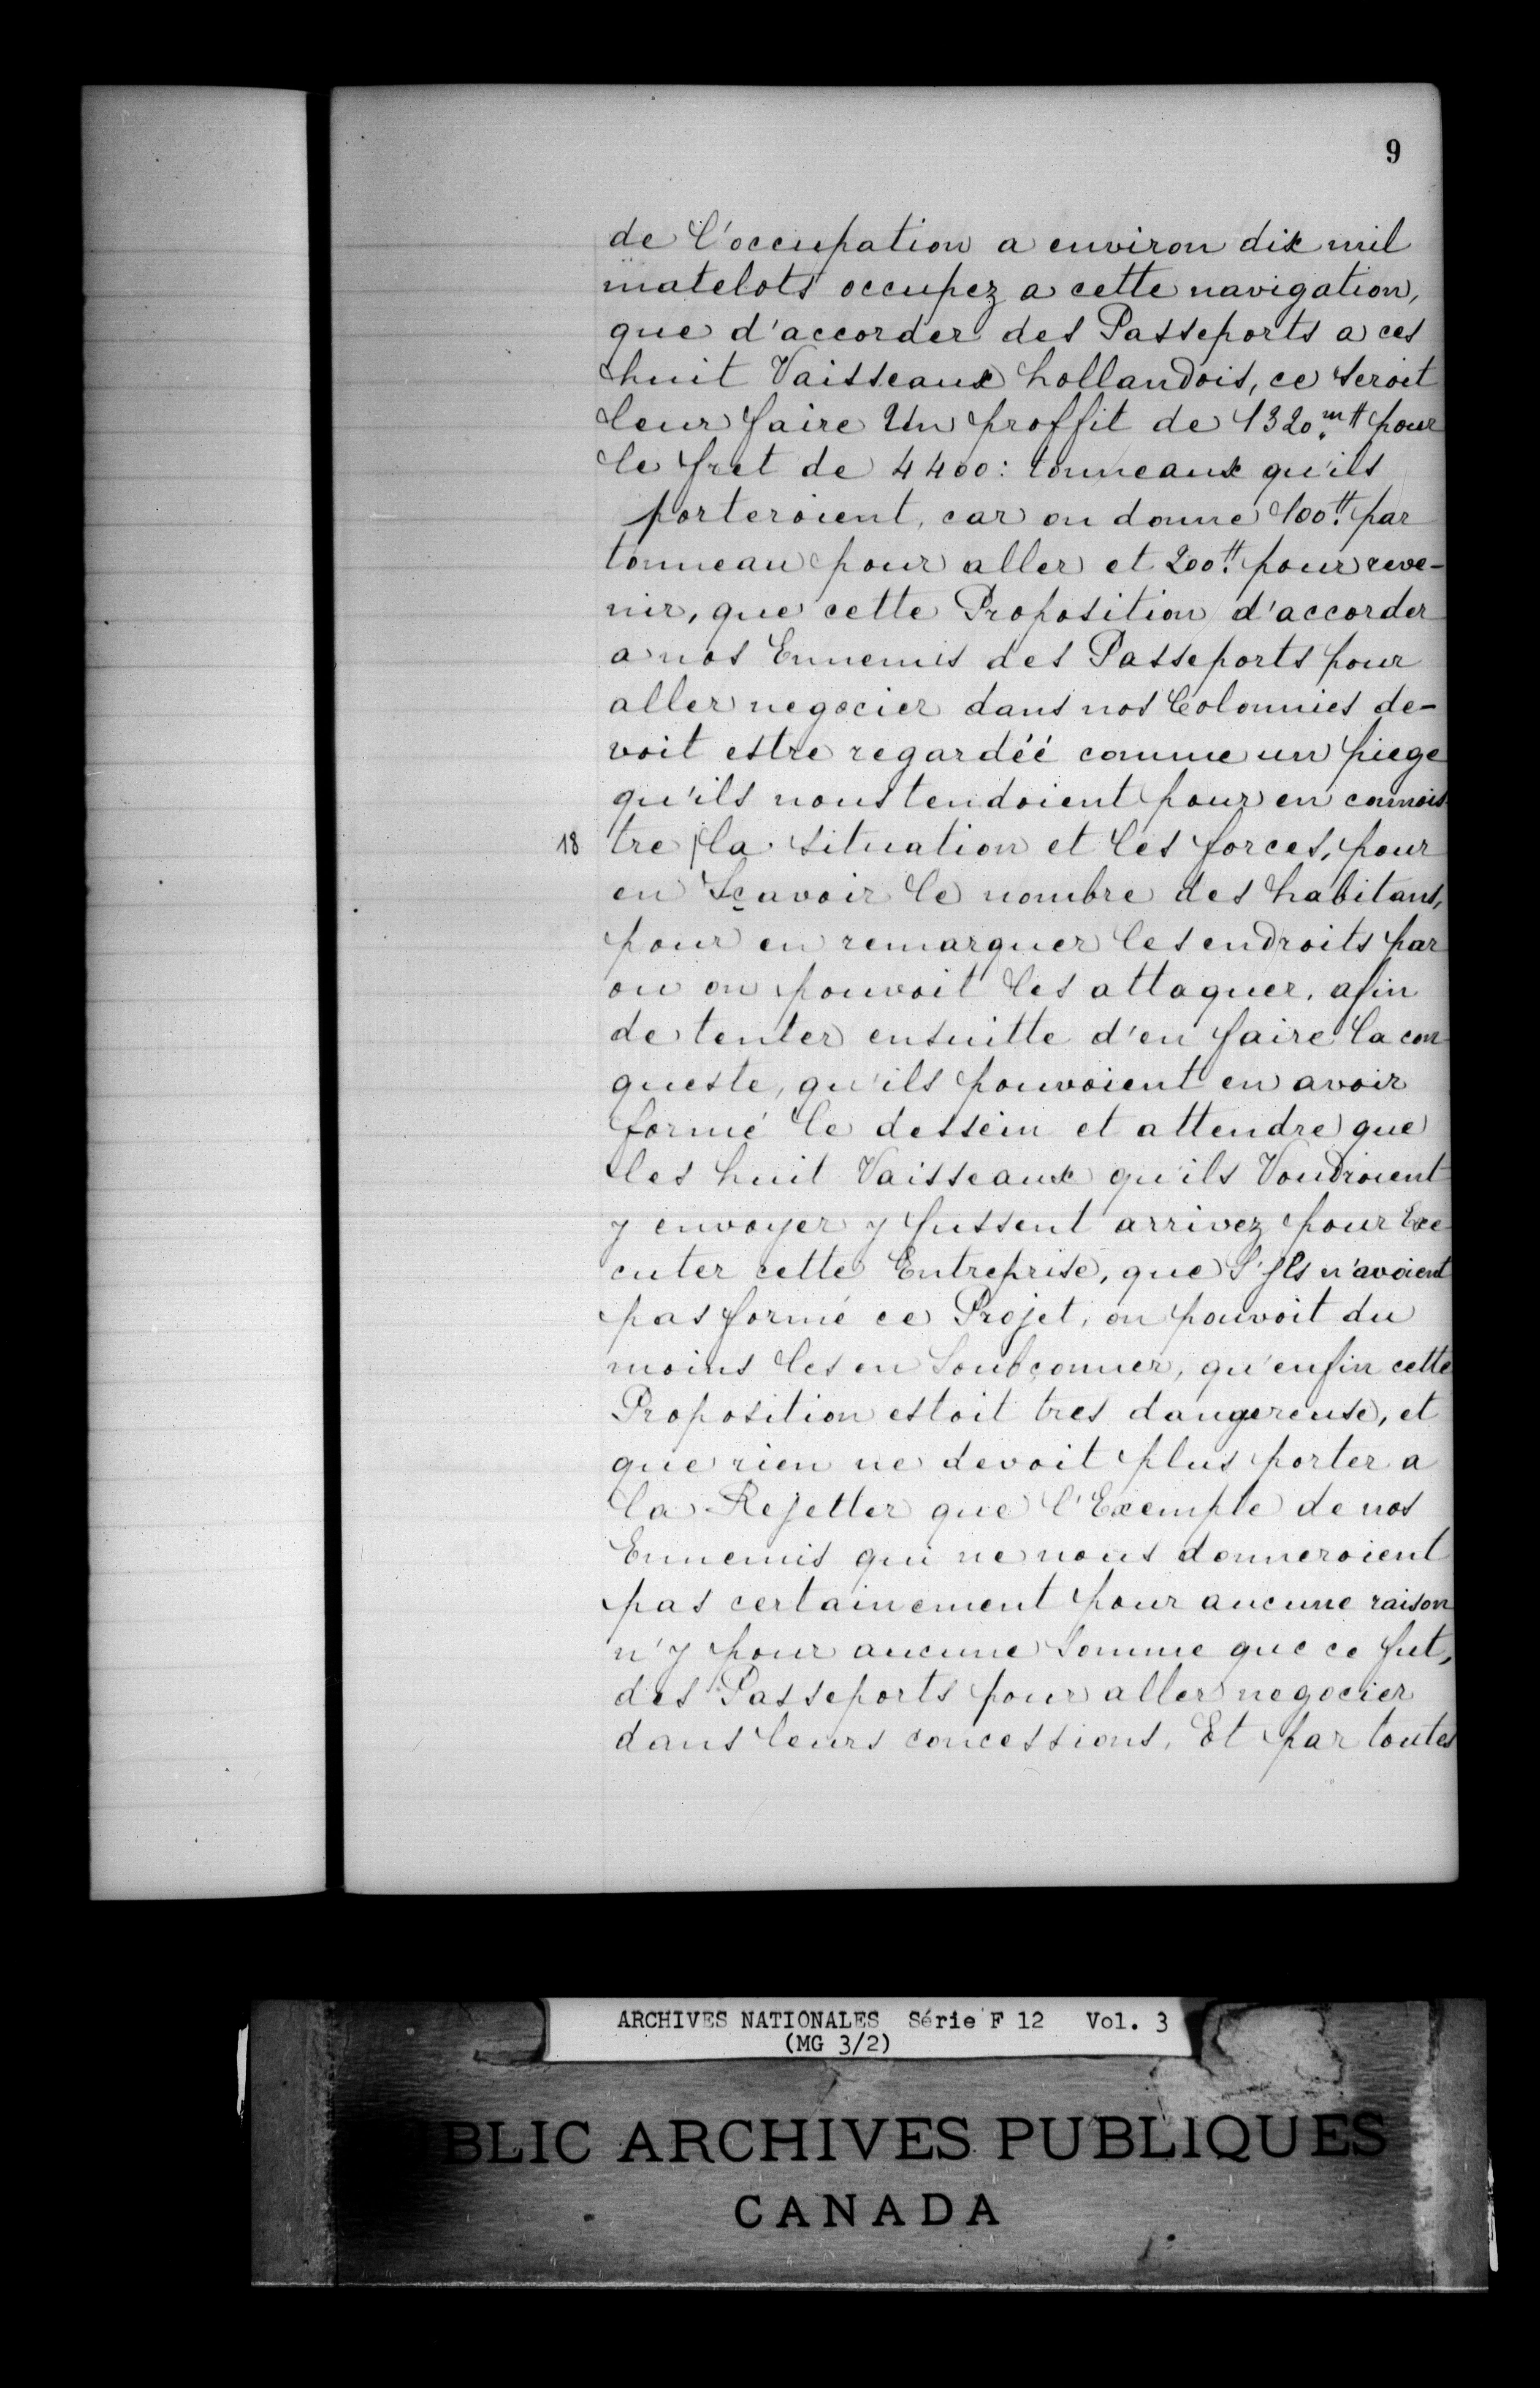 9
de l'occupation a environ dix mil
matelots occupez a cette navigation,
que d'accorder des Passeports a ces
huit Vaisseaux hollandois, ce seroit
leur faire Un proffit de 1320.m tt pour
le fret de 4400: tonneaux qu'ils
porteroient, car on donne 100.tt par
tonneau pour aller et 200.tt pour reve-
nir, que cette Proposition d'accorder
a nos Ennemis des Passeports pour
aller negocier dans nos Colonnies de-
voit estre regardéé comme un piege
qu'ils nous tendoient pour en connois-
18 tre | la situation et les forces, pour
en Sçavoir le nombre des habitans,
pour en remarquer les endroits par
ou on pouvoit les attaquer, afin
de tenter ensuitte d'en faire la con
queste, qu'ils pouvoient en avoir
formé le dessein et attendre que
les huit Vaisseaux qu'ils Voudroient
y envoyer y fussent arrivez pour Exe
cuter cette Entreprise, que S'Ils n'avoient
pas formé ce Projet, on pouvoit du
moins les en Soubçonner, qu'enfin cette
Proposition estoit tres dangereuse, et
que rien ne devoit plus porter a
la Rejetter que l'Exemple de nos
Ennemis qui ne nous donneroient
pas certainement pour aucune raison
n'y pour aucune Somme que ce fut,
des Passeports pour aller negocier
dans leurs concessions, Et par toutes
ARCHIVES NATIONALES Série F 12 Vol. 3
(MG 3/2)
BLIC ARCHIVES PUBLIQUES
CANADA